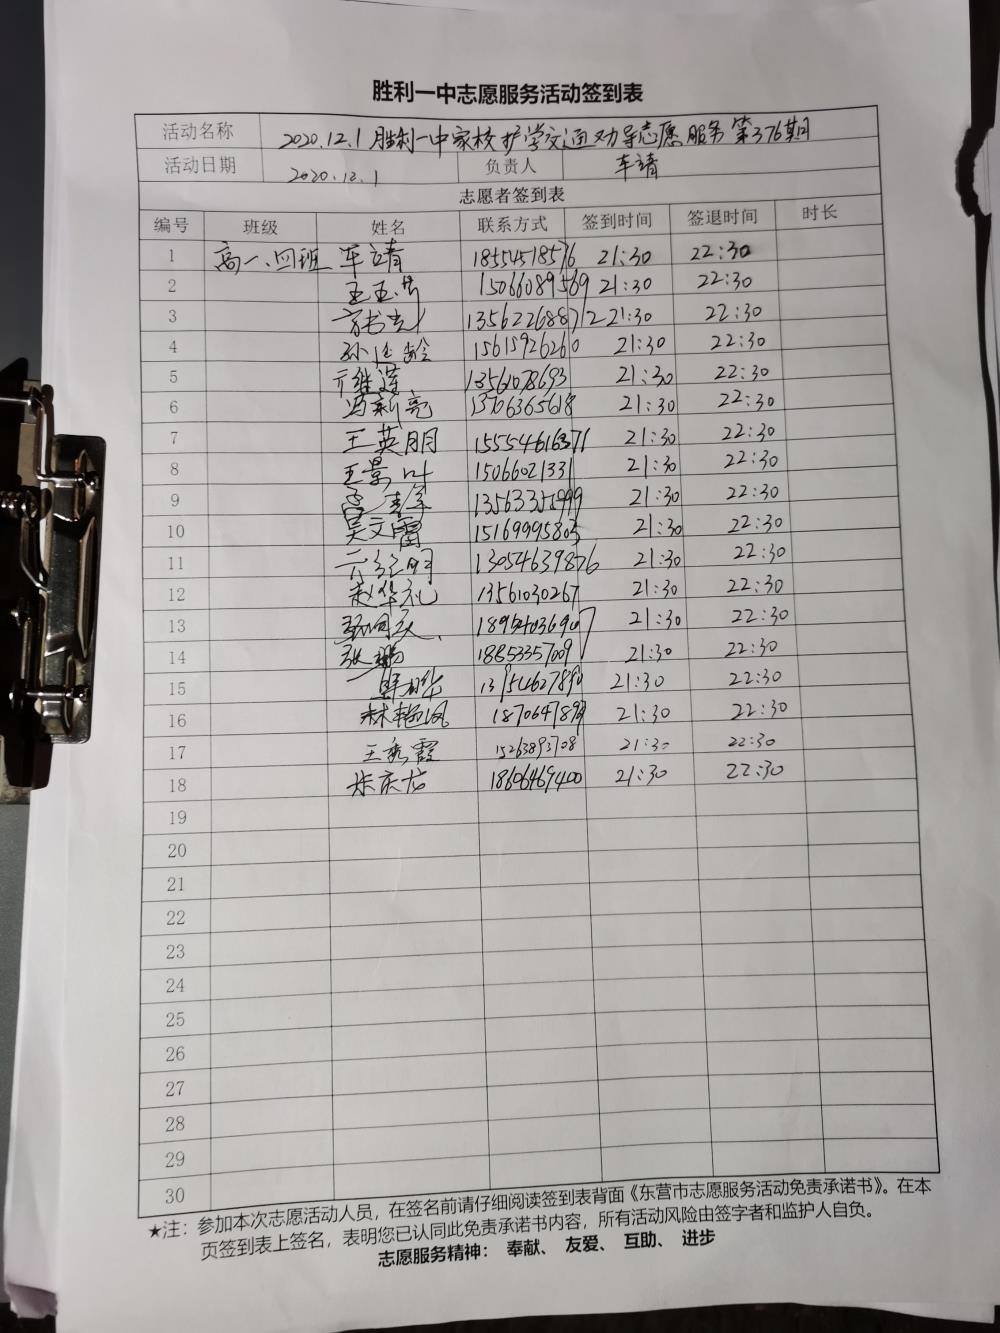 胜利一中志愿服务活动签到表
活动名称 2020.12.1胜利一中家校护学交通劝导志愿服务第376期
活动日期 2020.12.1 负责人 车靖
志愿者签到表
编号 班级 姓名 联系方式 签到时间 签退时间 时长
1 高一、四班 车靖 18554518576 21:30 22:30
2 15066089569 21:30 22:30
3 13562268872 21:30 22:30
4 15615926260 21:30 22:30
5 亓维莲 13561078693 21:30 22:30
6 冯新亮 13706365618 21:30 22:30
7 王英朋 15554616371 21:30 22:30
8 王景叶 15066021331 21:30 22:30
9 13563355999 21:30 22:30
10 吴文雷 15169995805 21:30 22:30
11 13054639876 21:30 22:30
12 赵华礼 13561030267 21:30 22:30
13 21:30 22:30
14 张鹏 18853357009 21:30 22:30
15 21:30 22:30
16 林艳凤 21:30 22:30
17 王秀霞 15263893708 21:30 22:30
18 18606469400 21:30 22:30
19
20
21
22
23
24
25
26
27
28
29
30
★注：参加本次志愿活动人员，在签名前请仔细阅读签到表背面《东营市志愿服务活动免责承诺书》。在本
页签到表上签名，表明您已认同此免责承诺书内容，所有活动风险由签字者和监护人自负。
志愿服务精神： 奉献、 友爱、 互助、 进步